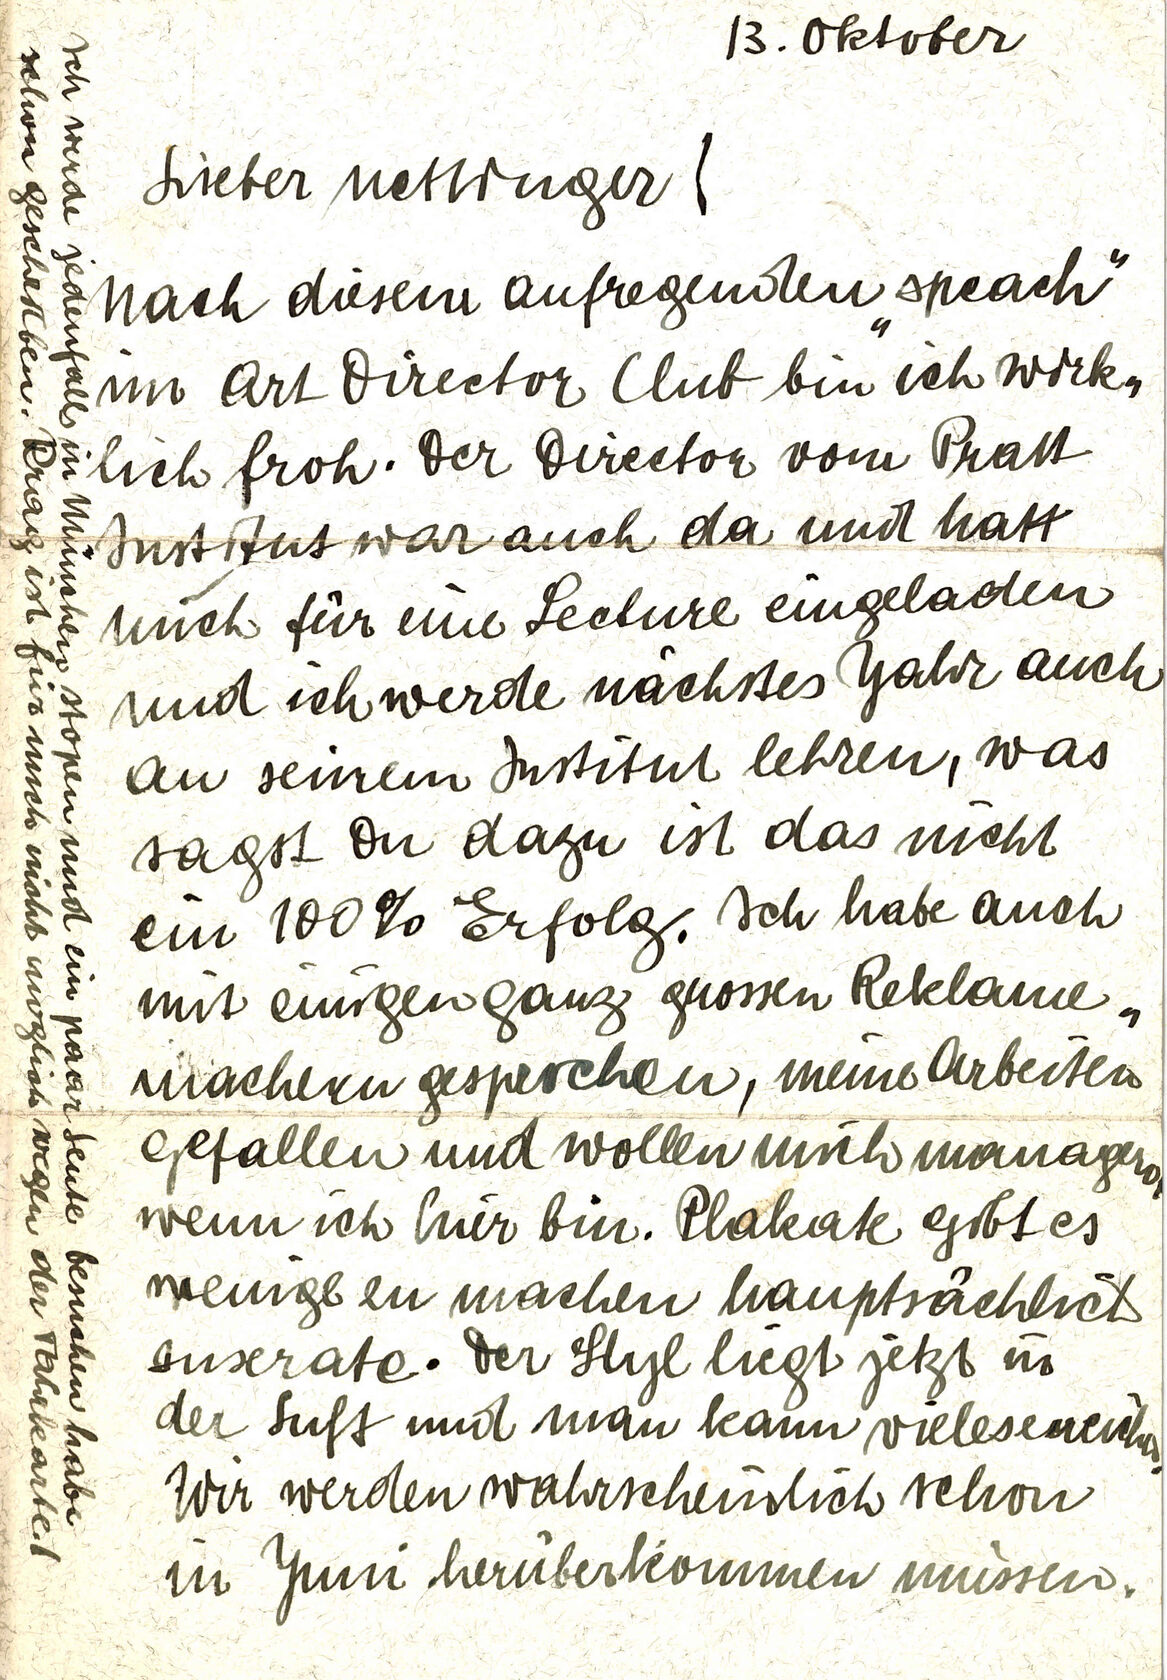 13. Oktober
Lieber Nettinger!
Nach diesem aufregenden „speach“
im Art Director Club bin ich wirk„
lich froh. Der Director vom Pratt
Institut war auch da und hatt
mich für eine Lecture eingeladen
und ich werde nächstes Yahr auch
an seinem Institut lehren, was
sagst Du dazu ist das nicht
ein 100% Erfolg. Ich habe auch
mit einigen ganz grossen Reklame„
machern gesperchen, meine Arbeiten
gefallen und wollen mich
wenn ich hier bin. Plakate gibt es
wenige zu machen hauptsächlich
inserate. Der Styl liegt jetzt in
der Luft und man kann vieles
Wir werden wahrscheinlich schon
in Yuni herüberkommen müssen.
Ich werde jedenfalls in München stopen und ein paar Leute besuchen habe
schon geschrieben. Prag ist für mich nicht möglich wegen der